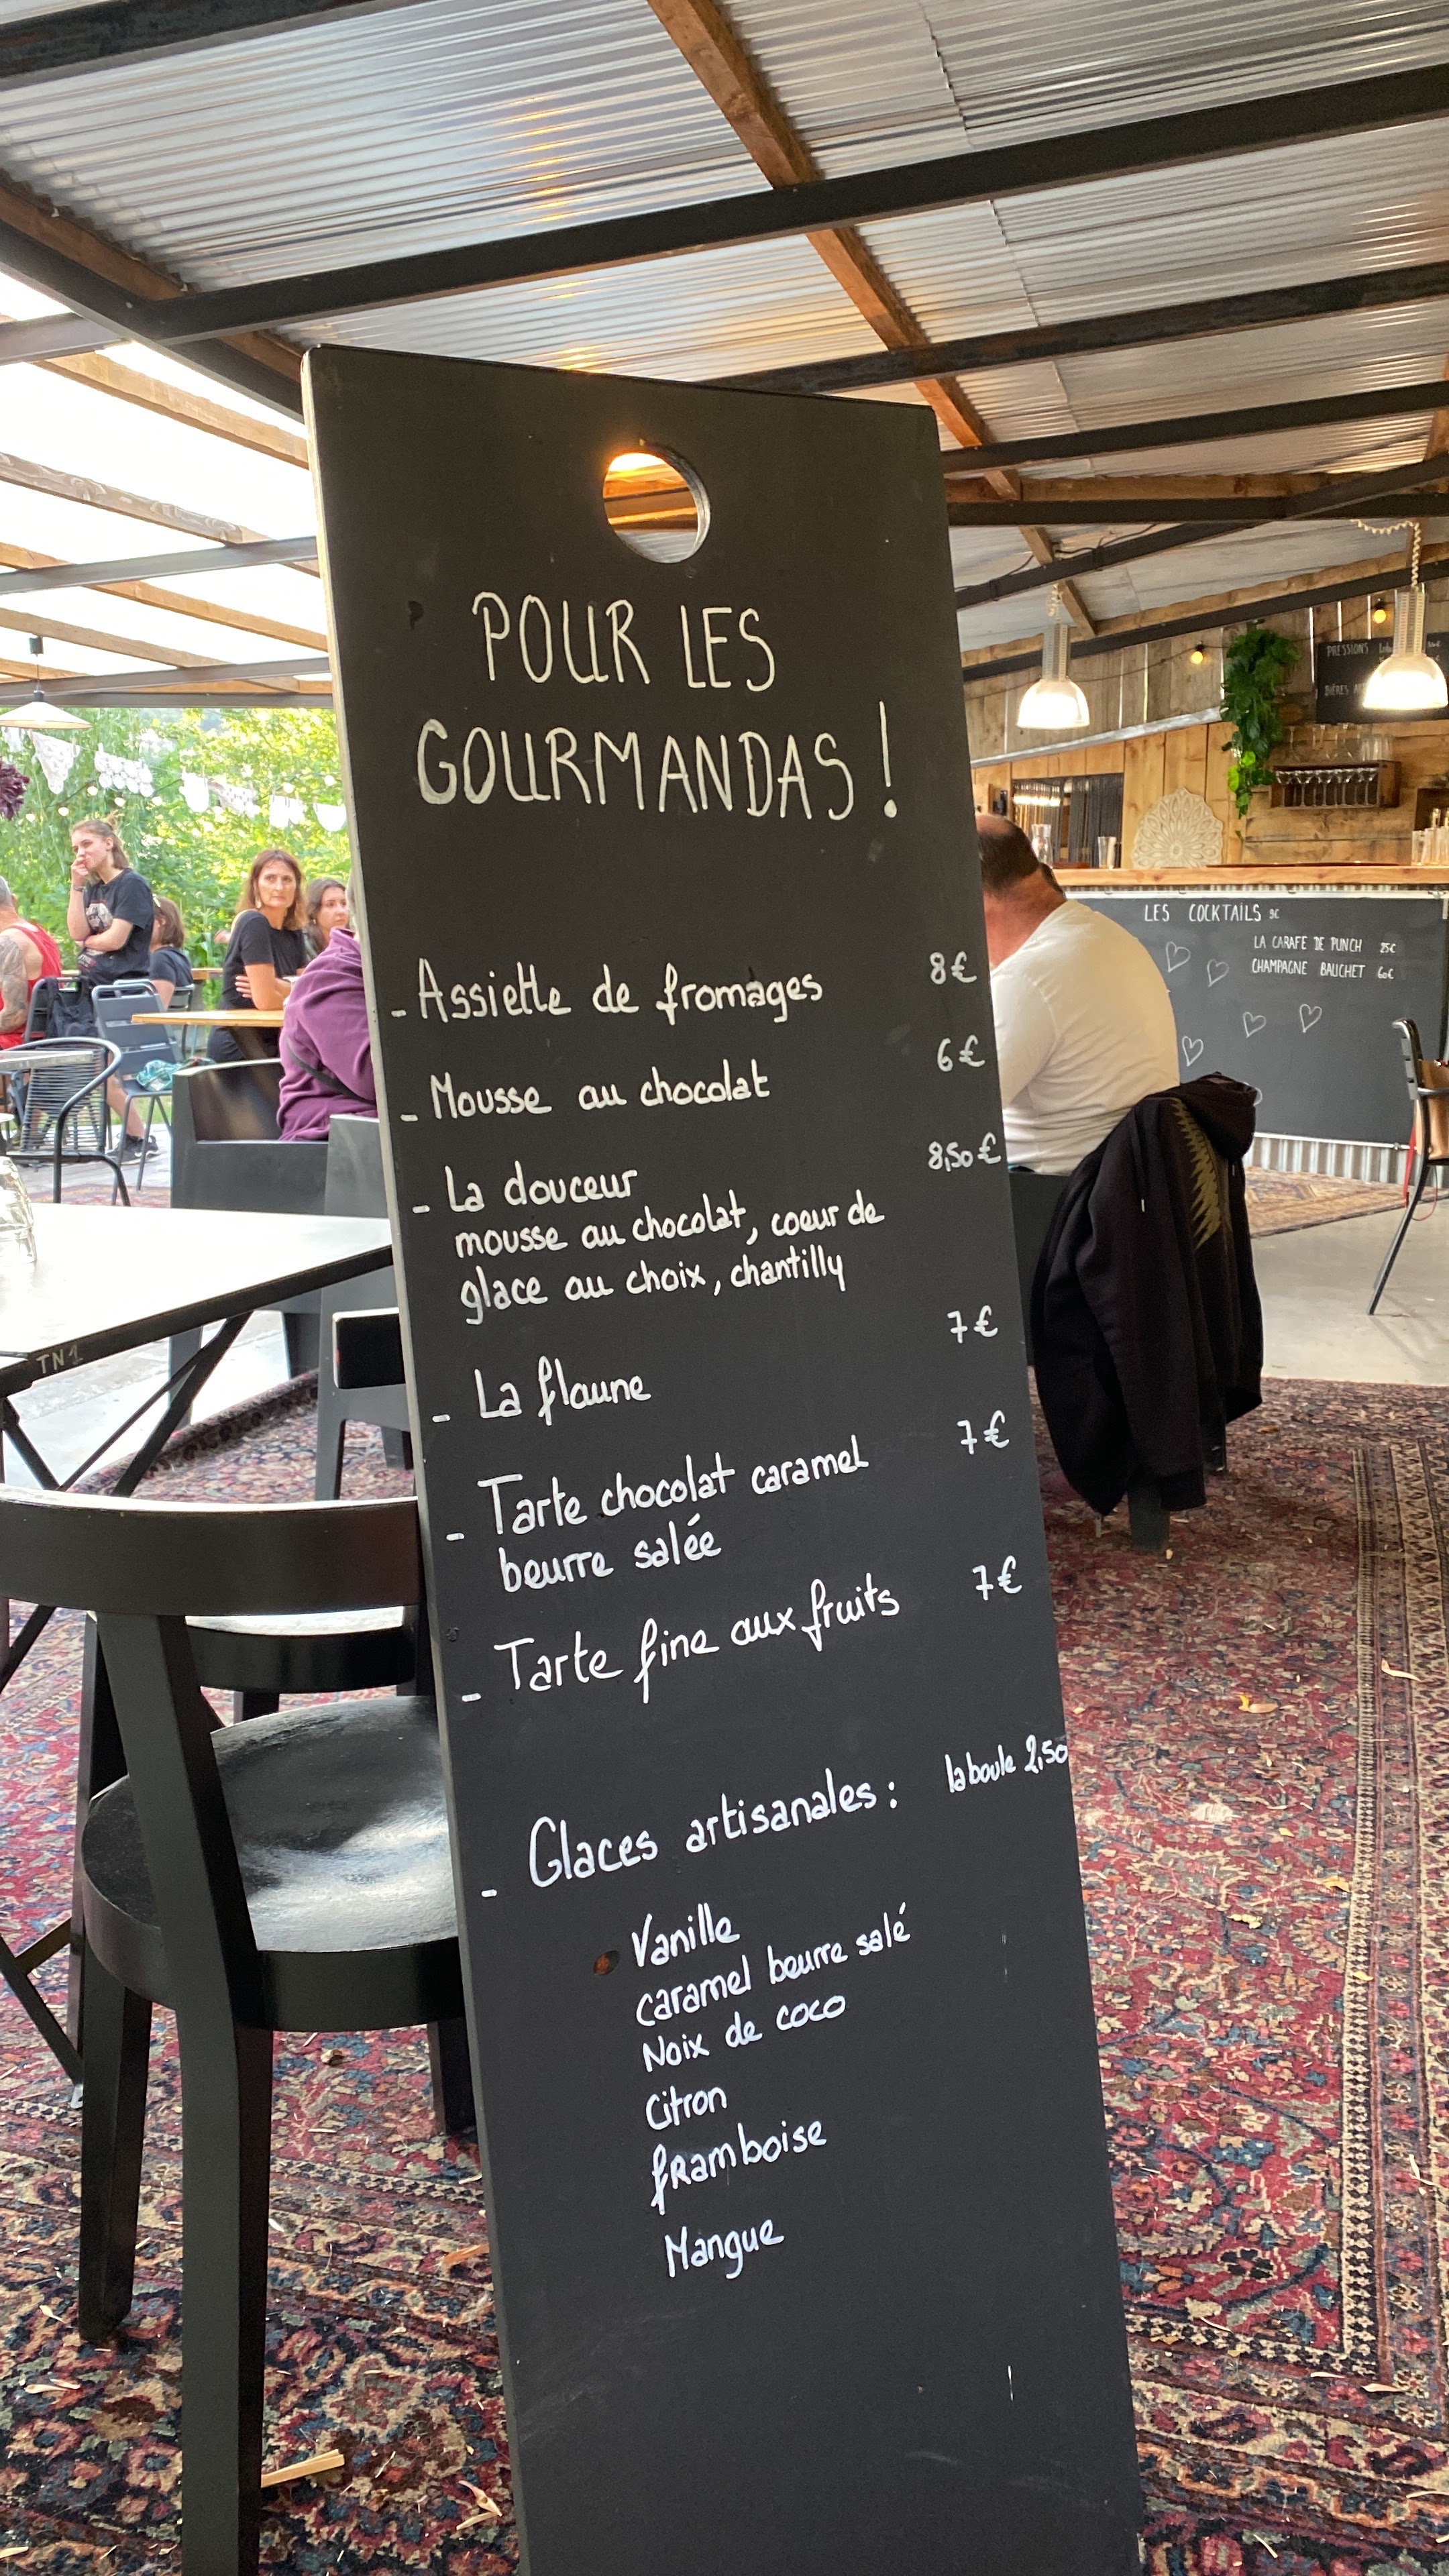 POUR LES
GOURMANDAS !
- Assiette de fromages 8€
- Mousse au chocolat 6€
- La douceur 8,50€
mousse au chocolat, coeur de
glace au choix, chantilly
- La flaune 7€
- Tarte chocolat caramel 7€
beurre salée
- Tarte fine aux fruits 7€
- Glaces artisanales : la boule 2,50
Vanille
caramel beurre salé
Noix de coco
Citron
framboise
Mangue
PRESSIONS
BIÈRES
LES COCKTAILS 9€
LA CARAFE DE PUNCH 25€
CHAMPAGNE BAUCHET 60€
TN1